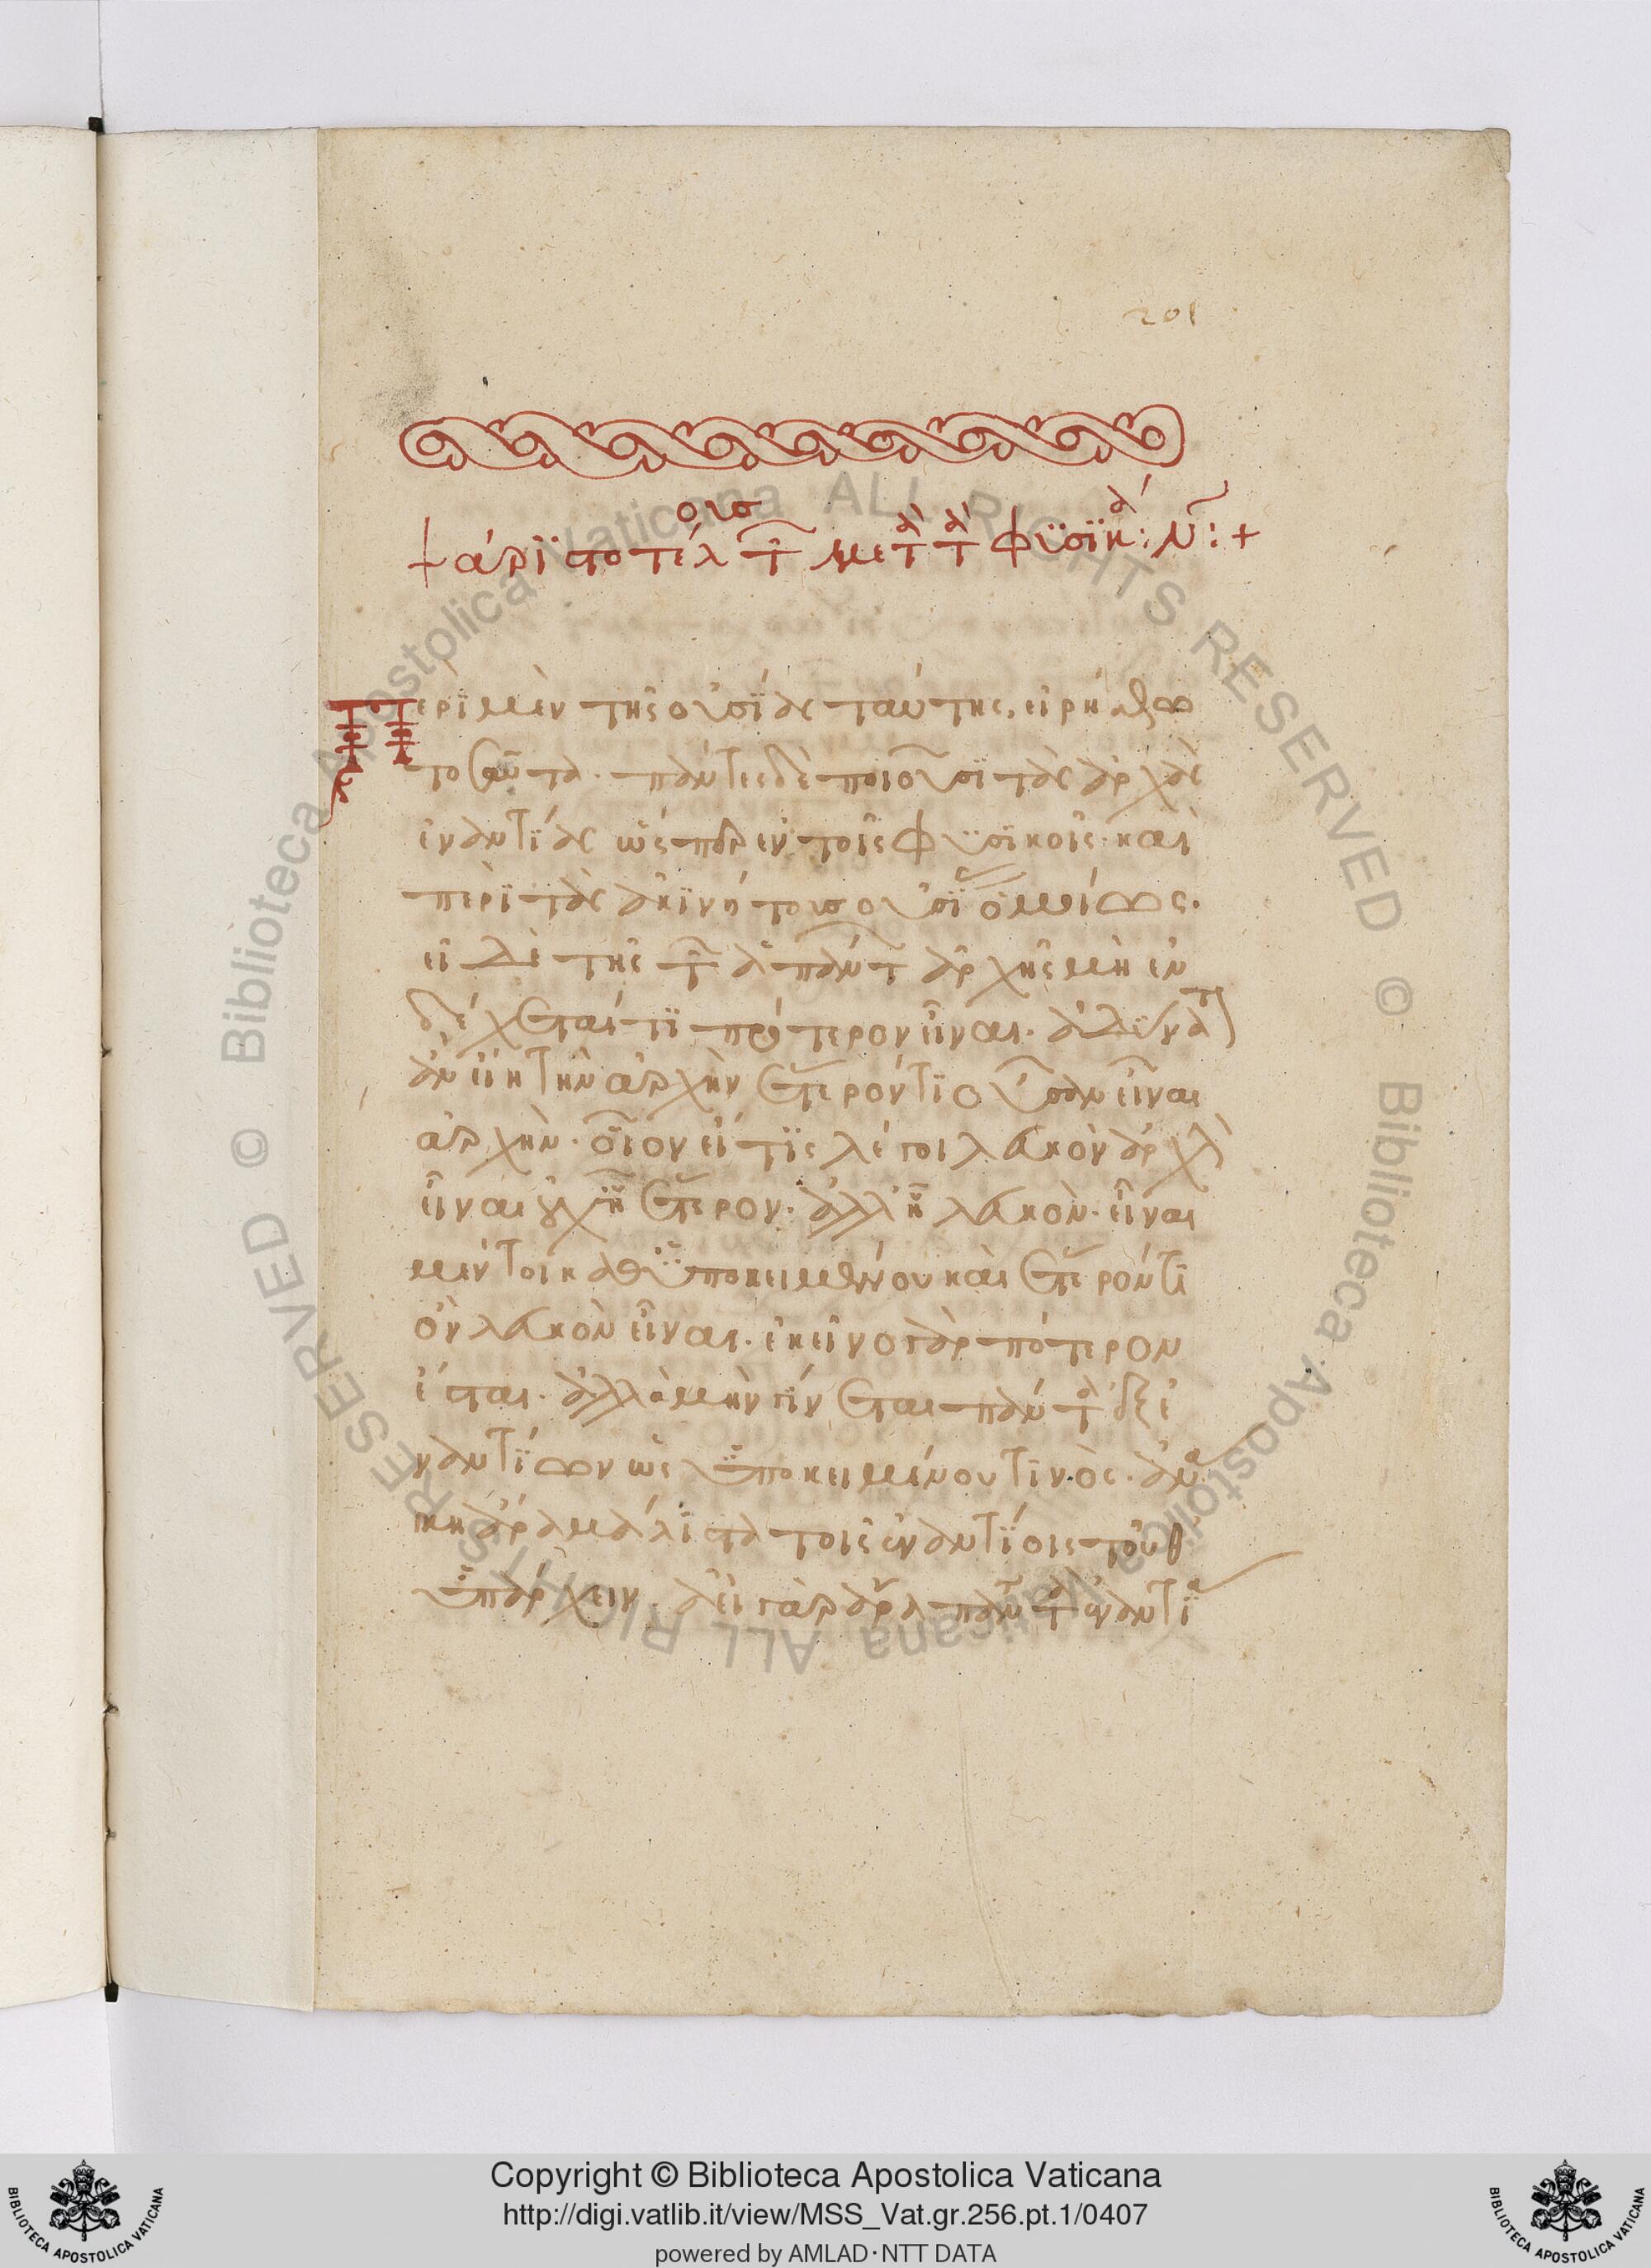 201
+ ἀρϊστοτέλους τῶν μετὰ τὰ φϋσϊκά: ν: +
Περὶ μὲν τῆς οὐσίας ταύτης, εἰρήσθω
τοσαῦτα. πάντες δὲ ποιοῦσϊ τὰς ἀρχὰς
ἐναντίας ὥσπερ ἐν τοῖς φυσϊκοῖς. καὶ
περὶ τὰς ἀκινήτους οὐσίας ὁμοίως.
εἰ δὲ τῆς τῶν ἁπάντων ἀρχῆς μὴ ἐν
δέχεταί τι πρότερον εἶναι. ἀδύνατον
ἂν εἴη τὴν ἀρχὴν ἕτερόν τι οὖσαν εἶναι
ἀρχήν. οἷον εἴ τις λέγοι λευκὸν ἀρχὴν
εἶναι οὐχ ᾗ ἕτερον. ἀλλ' ᾗ λευκὸν. εἶναι
μέντοι καθ' ὑποκειμένου καὶ ἕτερόν τι
ὂν λευκὸν εἶναι. ἐκεῖνο γὰρ πότερον
ἔσται. ἀλλὰ μὴν γίνεται πάντα ἐξ ἐ
ναντίων ὡς ὑποκειμένου τινός. ἀνά
γκη ἄρα μάλιστα τοῖς ἐναντίοις τοῦθ'
ὑπάρχειν. ἀεὶ γὰρ ἄρα πάντα τὰ ἐναντία
Copyright © Biblioteca Apostolica Vaticana
http://digi.vatlib.it/view/MSS_Vat.gr.256.pt.1/0407
powered by AMLAD·NTT DATA
BIBLIOTECA APOSTOLICA VATICANA
BIBLIOTECA APOSTOLICA VATICANA
© Biblioteca Apostolica Vaticana ALL RIGHTS RESERVED © Biblioteca Apostolica Vaticana ALL RIGHTS RESERVED